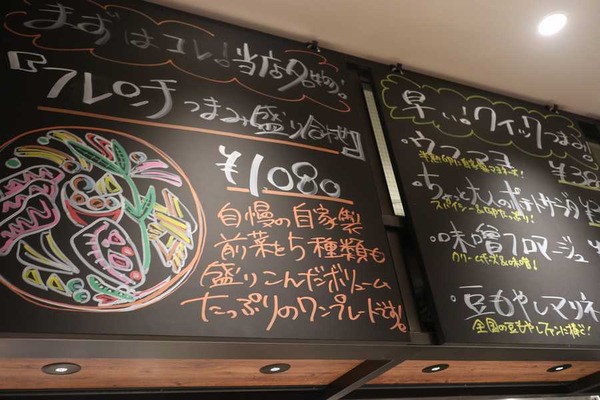 まずはコレ!当店名物!
『フレンチつまみ盛り合せ』
¥1080
自慢の自家製
前菜を5種類も
盛りこんだボリューム
たっぷりのワンプレートです!
早い。クイックつまみ!
ウフマヨ
¥38
ちょっと大人のポテトサラダ
スパイシー
味噌フロマージュ
クリームチーズ&味噌!
・豆もやしマリネ
全国の豆もやしファンに捧ぐ!